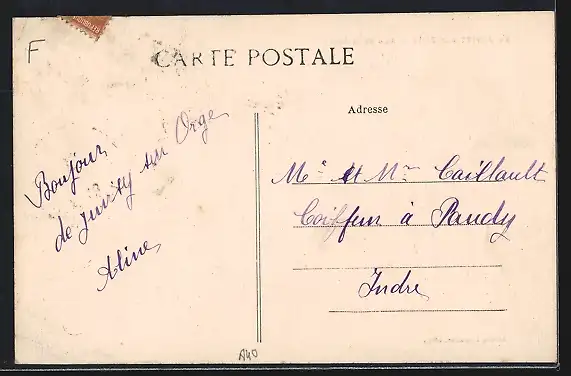 F
CARTE POSTALE
Adresse
Bonjour
de Juvisy sur Orge
Aline
Me et Mr Caillault
Coiffeur à Paudy
Indre
A40